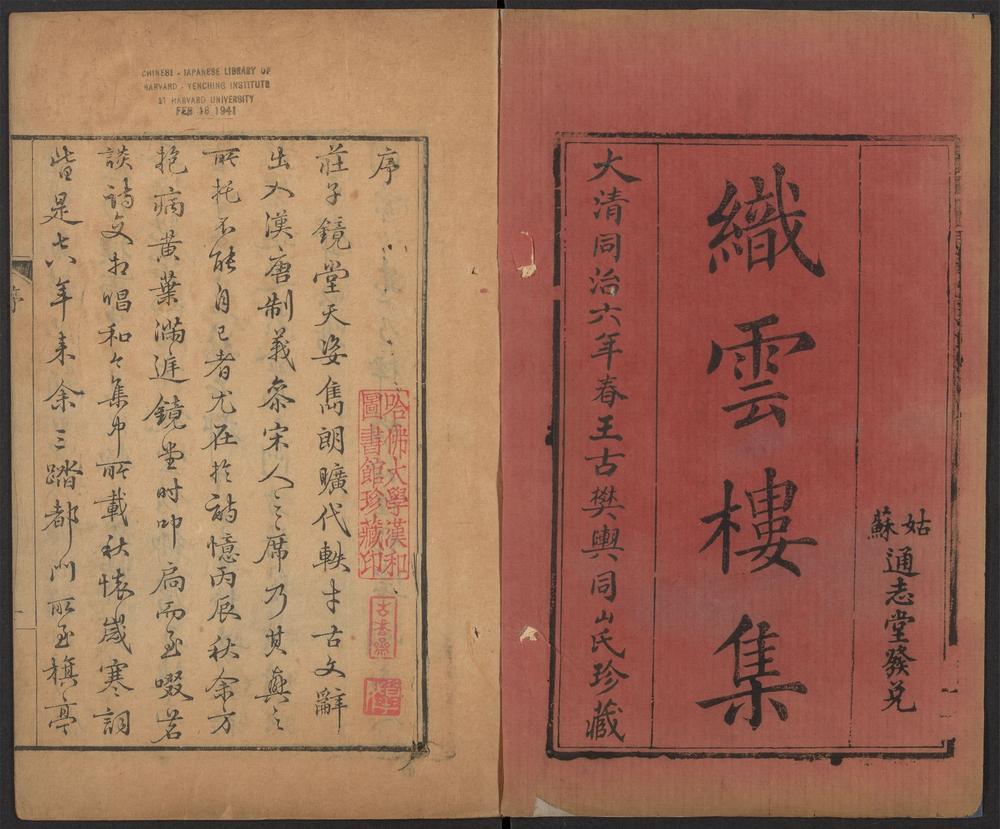 姑蘇
通志堂發兌
織雲樓集
大清同治六年春王古樊輿同山民珍藏
CHINESE - JAPANESE LIBRARY OF
HARVARD - YENCHING INSTITUTE
AT HARVARD UNIVERSITY
FEB 16 1941
序
莊子鏡堂天姿雋朗曠代軼才古文辭
出入漢唐制義奈宋人之席乃其興之
所托不能自已者尤在於詩憶丙辰秋余方
抱病黃葉滿庭鏡堂時叩扃而至啜茗
談詩文相唱和今集中所載秋懷歲寒詞
皆是七八年來余三踏都門所至旗亭
哈佛大學漢和
圖書館珍藏印
序